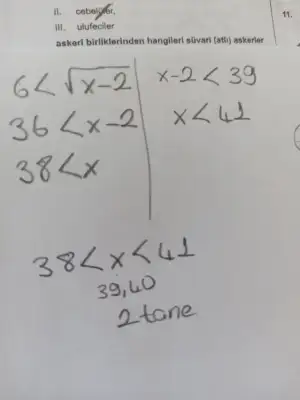 ii. cebeciler,
11.
iii. ulufeciler
askeri birliklerinden hangileri süvari (atlı) askerler
6 < √x-2
x-2 < 39
36 < x-2
x < 41
38 < x
38 < x < 41
39, 40
2 tane